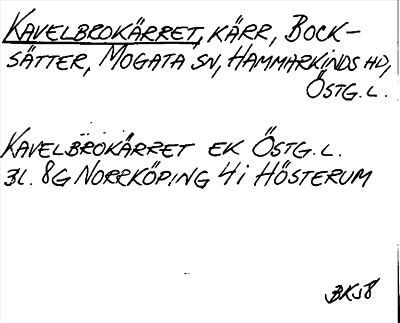 KAVELBROKÄRRET, KÄRR, BOCK-
SÄTTER, MOGATA SN, HAMMARKINDS HD,
ÖSTG. L.
KAVELBROKÄRRET EK ÖSTG. L.
BL. 8G NORRKÖPING 4i HÖSTERUM
BK58